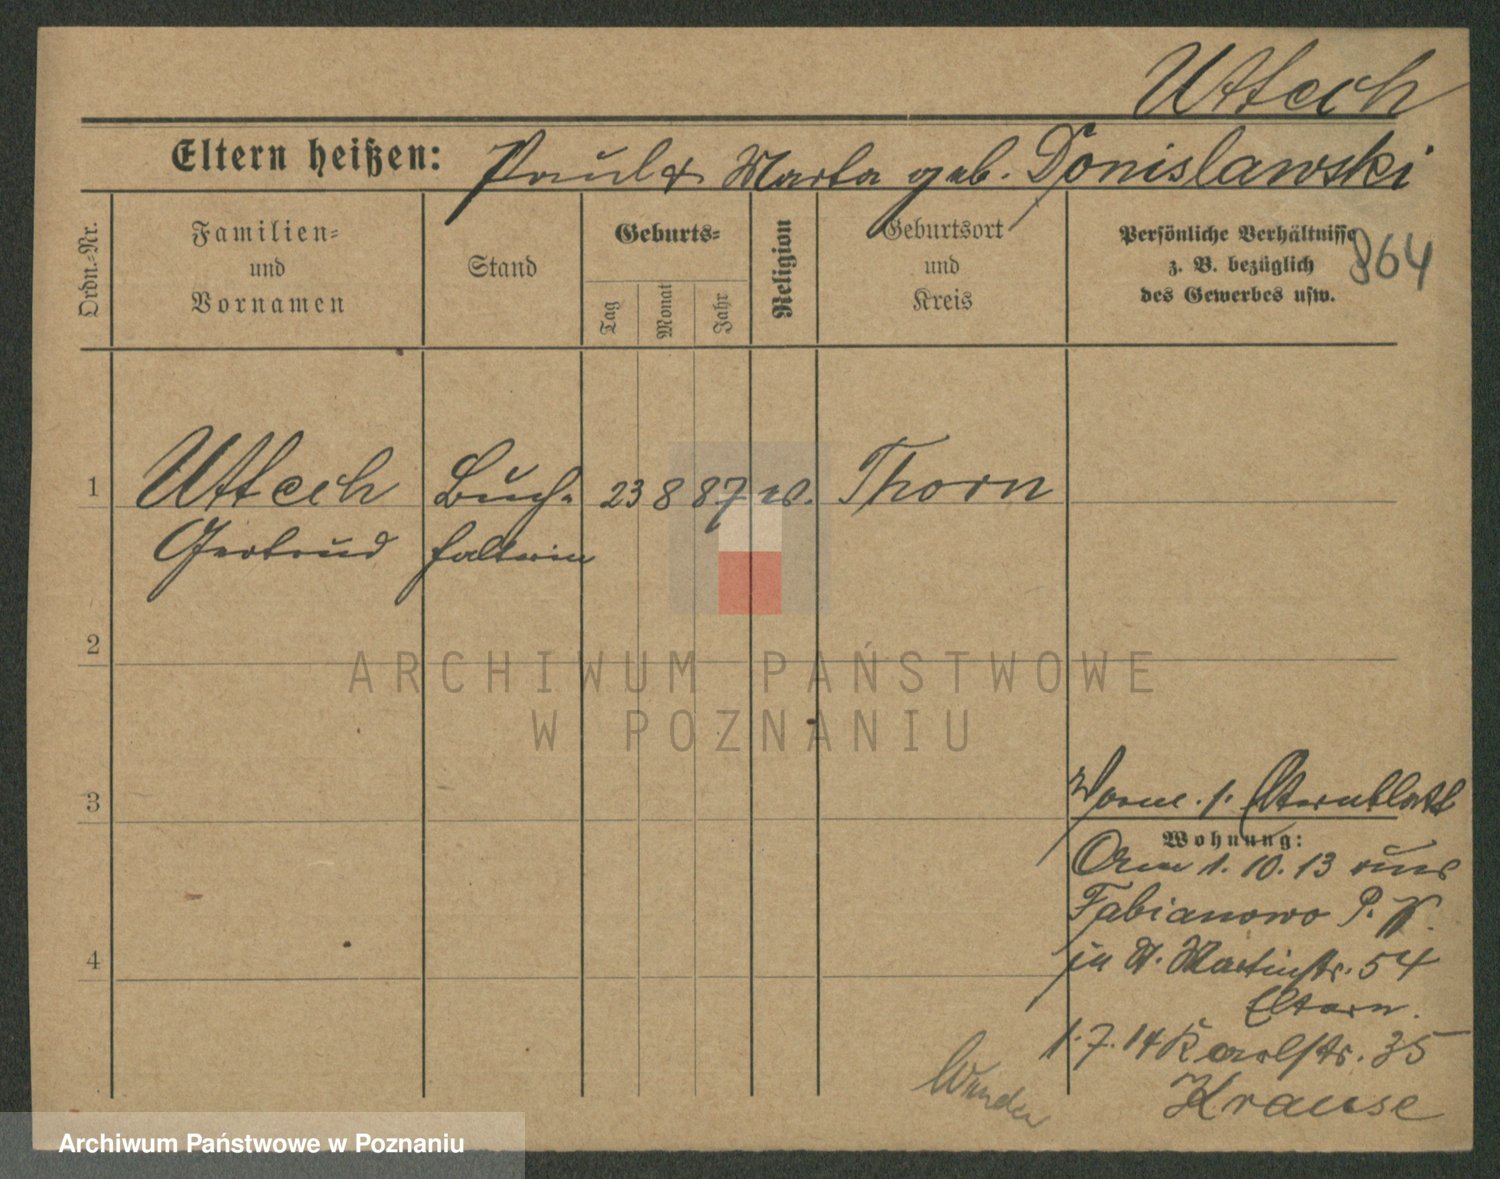 Uttech
Eltern heißen: Paul & Marta geb. Donislawski
Ordn.-Nr.
Familien-
und
Vornamen
Stand
Geburts-
Tag
Monat
Jahr
Religion
Geburtsort
und
Kreis
Persönliche Verhältnisse
z. B. bezüglich
des Gewerbes usw.
864
1 Uttech Buch- 23 8 87 Thorn
Gertrud halterin
2
3
4
s. Elternblatt
Wohnung:
1.10.13 aus
Fabianowo P. W.
zu St. Martinstr. 54
Eltern.
1.7.14 Karlstr. 35
Krause
ARCHIWUM PAŃSTWOWE
W POZNANIU
Archiwum Państwowe w Poznaniu